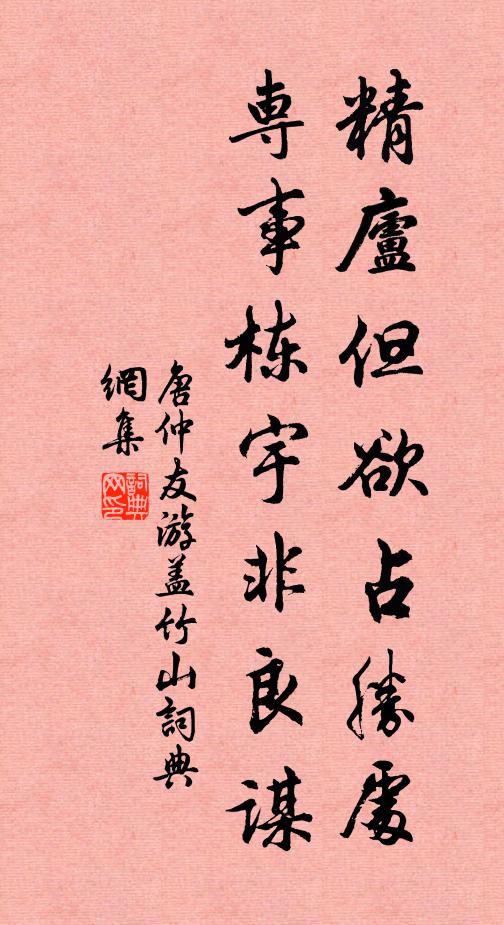 精廬但欲占勝處
専事栋宇非良谋
唐仲友游盖竹山詞典
網集
詞典
网印